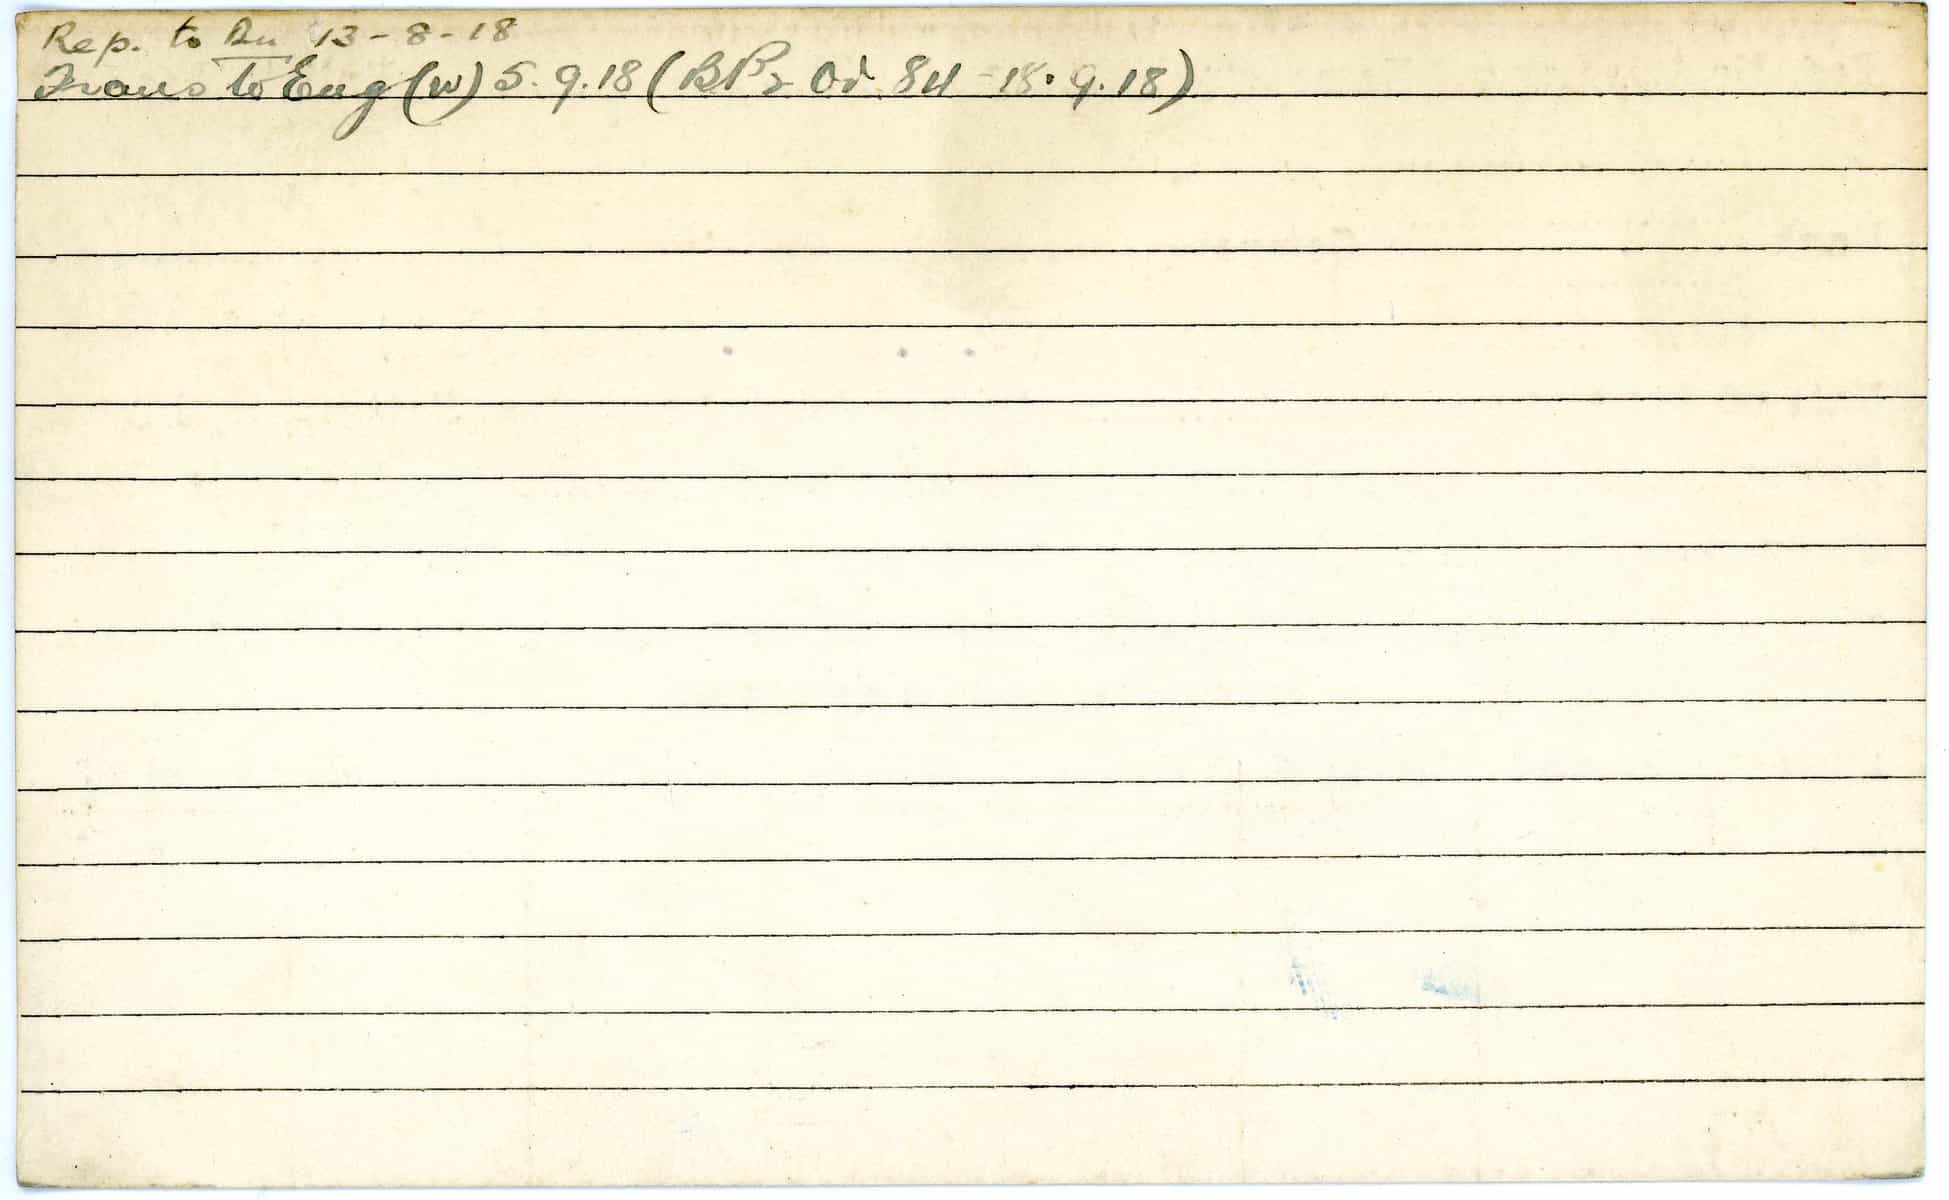 Rep. to Bn 13-8-18
Trans to Eng (W) 5.9.18 (BP2 Or 84 - 18.9.18)